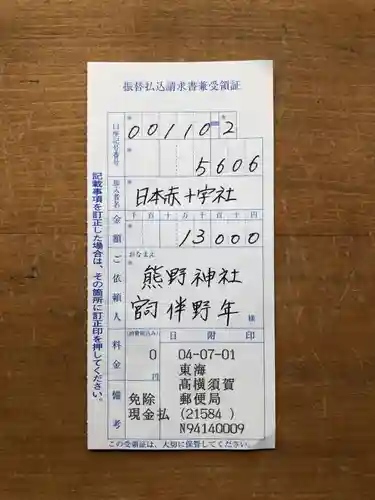 振替払込請求書兼受領証
口座記号番号
00110-2
5606
加入者名
日本赤十字社
金額
千百十万千百十円
13000
ご依頼人
おなまえ
熊野神社
宮司 伴野年
様
料金
(消費税込み)
0
円
日附印
04-07-01
東海
高横須賀
郵便局
(21584 )
N94140009
備考
免除
現金払
この受領証は、大切に保管してください。
記載事項を訂正した場合は、その箇所に訂正印を押してください。